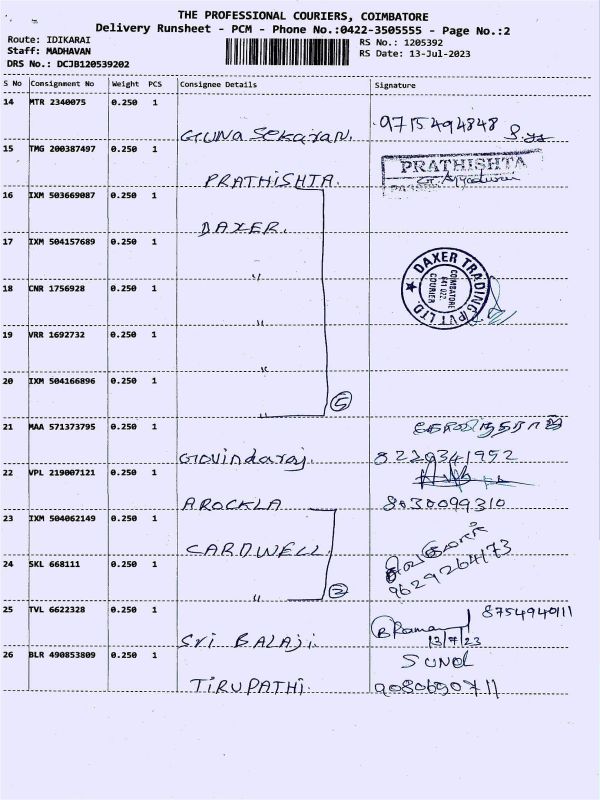 THE PROFESSIONAL COURIERS, COIMBATORE
Delivery Runsheet - PCM - Phone No.:0422-3505555 - Page No.:2
Route: IDIKARAI
RS No.: 1205392
Staff: MADHAVAN
RS Date: 13-Jul-2023
DRS No.: DCJB120539202
S No Consignment No Weight PCS Consignee Details Signature
14 MTR 2340075 0.250 1
GUNA SEKARAN. 9715494848
15 TMG 200387497 0.250 1
PRATHISHTA. PRATHISHTA
16 IXM 503669087 0.250 1
DAXER.
17 IXM 504157689 0.250 1
"
DAXER TRADING PVT LTD.
COIMBATORE
641 022.
COURIER
18 CNR 1756928 0.250 1
"
19 VRR 1692732 0.250 1
"
20 IXM 504166896 0.250 1
" 5
21 MAA 571373795 0.250 1
Govindaraj. 8220341952
22 VPL 219007121 0.250 1
AROCKIA 8030099310
23 IXM 504062149 0.250 1
CARDWELL
24 SKL 668111 0.250 1
9629264173
" 2
25 TVL 6622328 0.250 1
8754940111
B Raman
Sri BALAJi. 13/7/23
26 BLR 490853809 0.250 1
TIRUPATHI. 9080690711